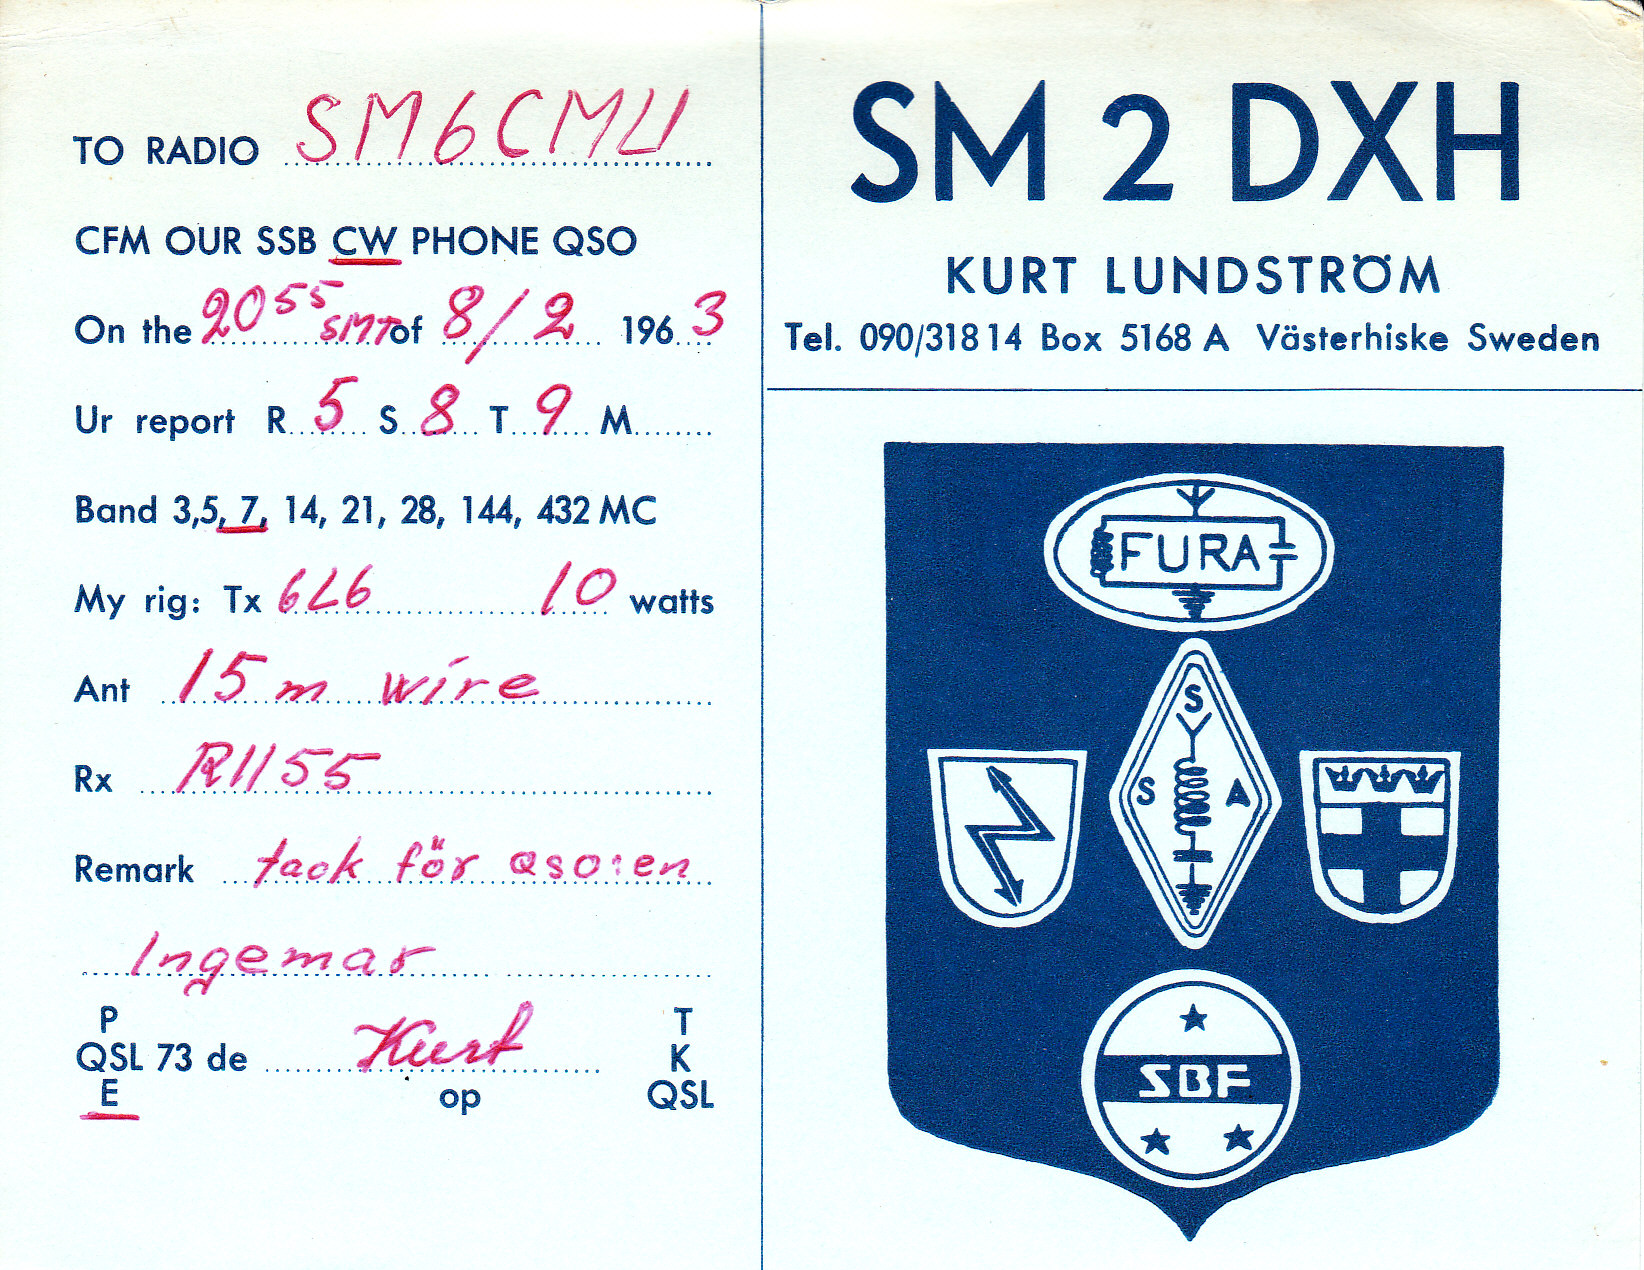 TO RADIO SM6CMU
CFM OUR SSB CW PHONE QSO
On the 20 55 SMT of 8/2 1963
Ur report R 5 S 8 T 9 M
Band 3,5, 7, 14, 21, 28, 144, 432 MC
My rig: Tx 6L6 10 watts
Ant 15 m wire
Rx R1155
Remark tack för QSO:en
Ingemar
P T
QSL 73 de Kurt K
E op QSL
SM 2 DXH
KURT LUNDSTRÖM
Tel. 090/318 14 Box 5168 A Västerhiske Sweden
FURA
S
S A
SBF